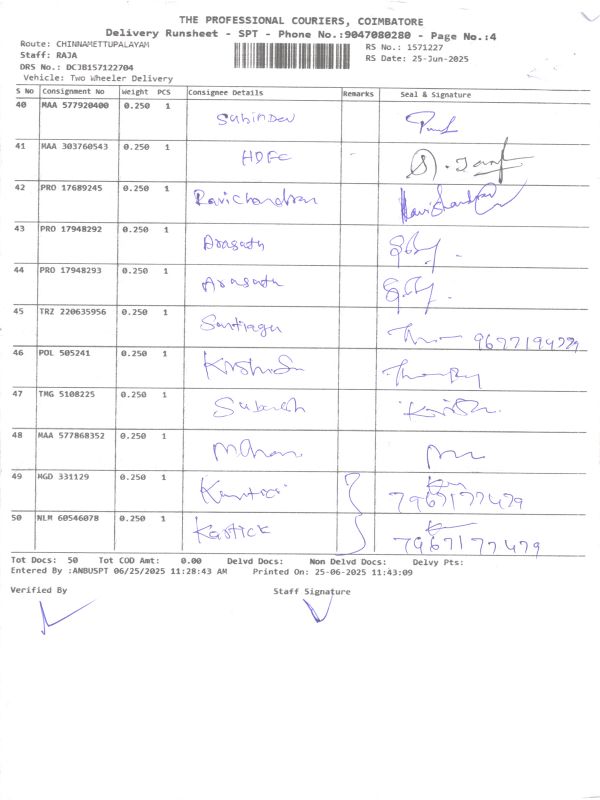 THE PROFESSIONAL COURIERS, COIMBATORE
Delivery Runsheet - SPT - Phone No.:9047080280 - Page No.:4
Route: CHINNAMETTUPALAYAM
RS No.: 1571227
Staff: RAJA
RS Date: 25-Jun-2025
DRS No.: DCJB157122704
Vehicle: Two Wheeler Delivery
S No Consignment No Weight PCS Consignee Details Remarks Seal & Signature
40 MAA 577920400 0.250 1 Subindev
41 MAA 303760543 0.250 1 HDFC
42 PRO 17689245 0.250 1 Ravichandran Ravichandran
43 PRO 17948292 0.250 1 Arasath
44 PRO 17948293 0.250 1 Arasath
45 TRZ 220635956 0.250 1 Santiagu
46 POL 505241 0.250 1
47 TMG 5108225 0.250 1 Subash
48 MAA 577868352 0.250 1 Mohan
49 MGD 331129 0.250 1 7967177479
50 NLM 60546078 0.250 1 Kartick 7967177479
Tot Docs: 50 Tot COD Amt: 0.00 Delvd Docs: Non Delvd Docs: Delvy Pts:
Entered By :ANBUSPT 06/25/2025 11:28:43 AM Printed On: 25-06-2025 11:43:09
Verified By Staff Signature